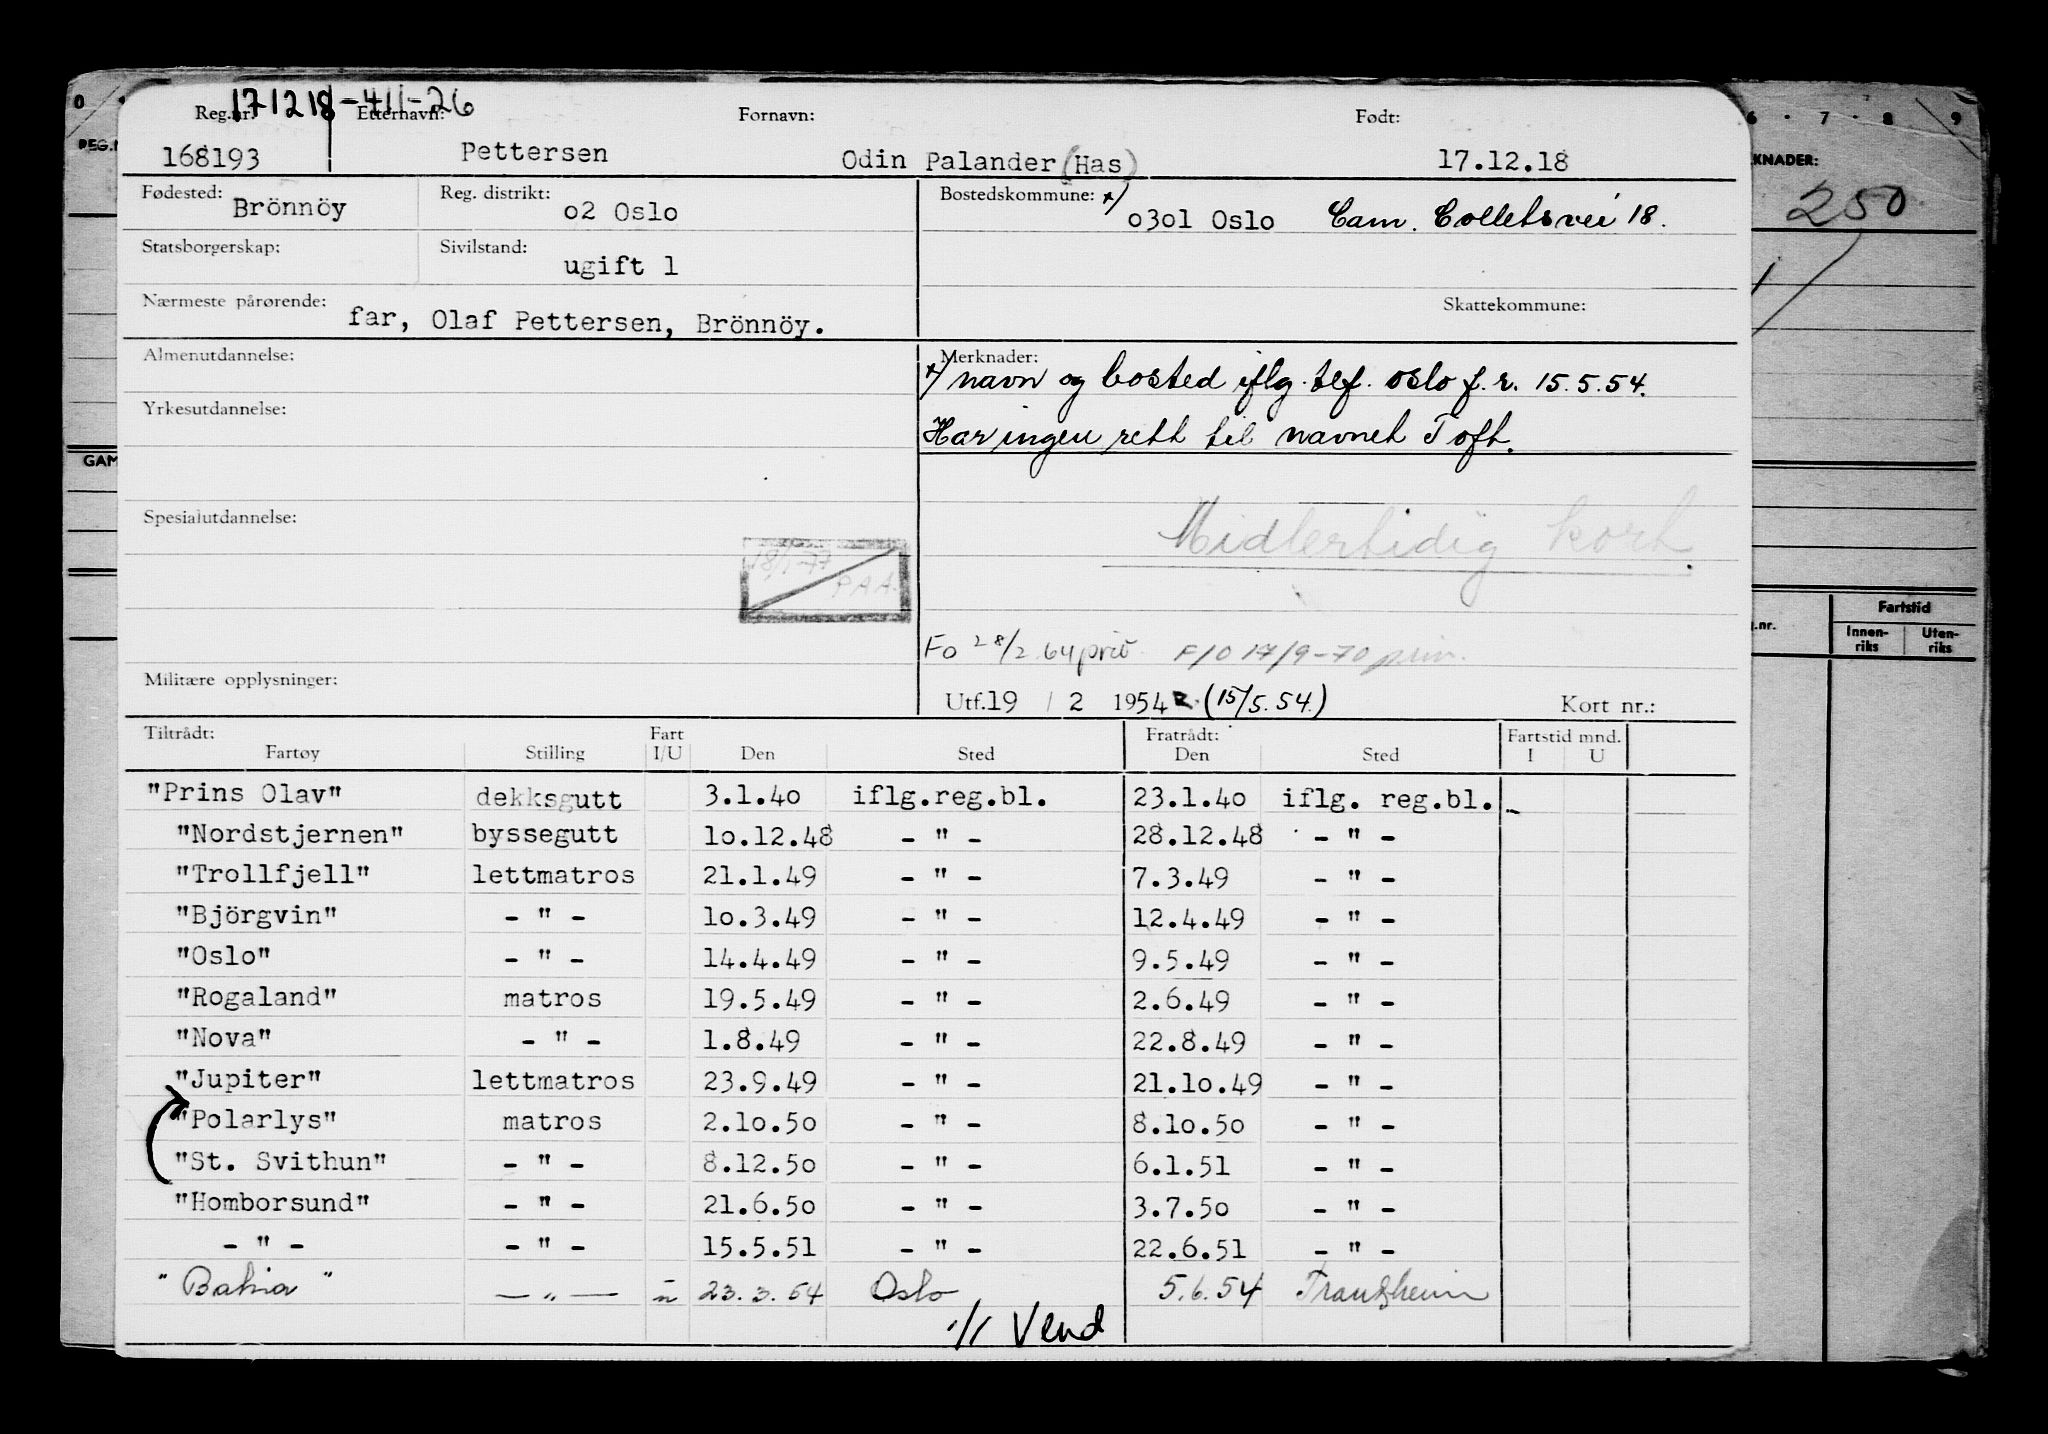 171218-411-26
Reg.nr. Etternavn: Fornavn: Født:
168193 Pettersen Odin Palander (Has) 17.12.18
Fødested: Brönnöy Reg. distrikt: o2 Oslo Bostedskommune: x) o3o1 Oslo Cam. Colletsvei 18.
Statsborgerskap: Sivilstand: ugift 1
Nærmeste pårørende: far, Olaf Pettersen, Brönnöy. Skattekommune:
Almenutdannelse: Merknader:
x) navn og bosted iflg. tlf. oslo f.r. 15.5.54.
Yrkesutdannelse:
Har ingen rett til navnet Toft.
Spesialutdannelse: Midlertidig kort.
18/1-77
P A A.
Fo 28/2 64 F/O 17/9-70
Militære opplysninger: Utf.19 / 2 1954 R. (15/5.54.) Kort nr.:
Tiltrådt: Fart Fratrådt: Fartstid mnd.
Fartøy Stilling I/U Den Sted Den Sted I U
"Prins Olav" dekksgutt 3.1.4o iflg.reg.bl. 23.1.4o iflg. reg.bl. -
"Nordstjernen" byssegutt 1o.12.48 - " - 28.12.48 - " -
"Trollfjell" lettmatros 21.1.49 - " - 7.3.49 - " -
"Björgvin" - " - 1o.3.49 - " - 12.4.49 - " -
"Oslo" - " - 14.4.49 - " - 9.5.49 - " -
"Rogaland" matros 19.5.49 - " - 2.6.49 - " -
"Nova" - " - 1.8.49 - " - 22.8.49 - " -
"Jupiter" lettmatros 23.9.49 - " - 21.1o.49 - " -
"Polarlys" matros 2.1o.5o - " - 8.1o.5o - " -
"St. Svithun" - " - 8.12.5o - " - 6.1.51 - " -
"Homborsund" - " - 21.6.5o - " - 3.7.5o - " -
- " - - " - 15.5.51 - " - 22.6.51 - " -
"Bahia" - " - u 23.3.54 Oslo 5.6.54
·/1 Vend
0
REG.N
GAM
6 · 7 · 8 · 9
KNADER:
250
Fartstid
.nr. Innen-riks Uten-riks